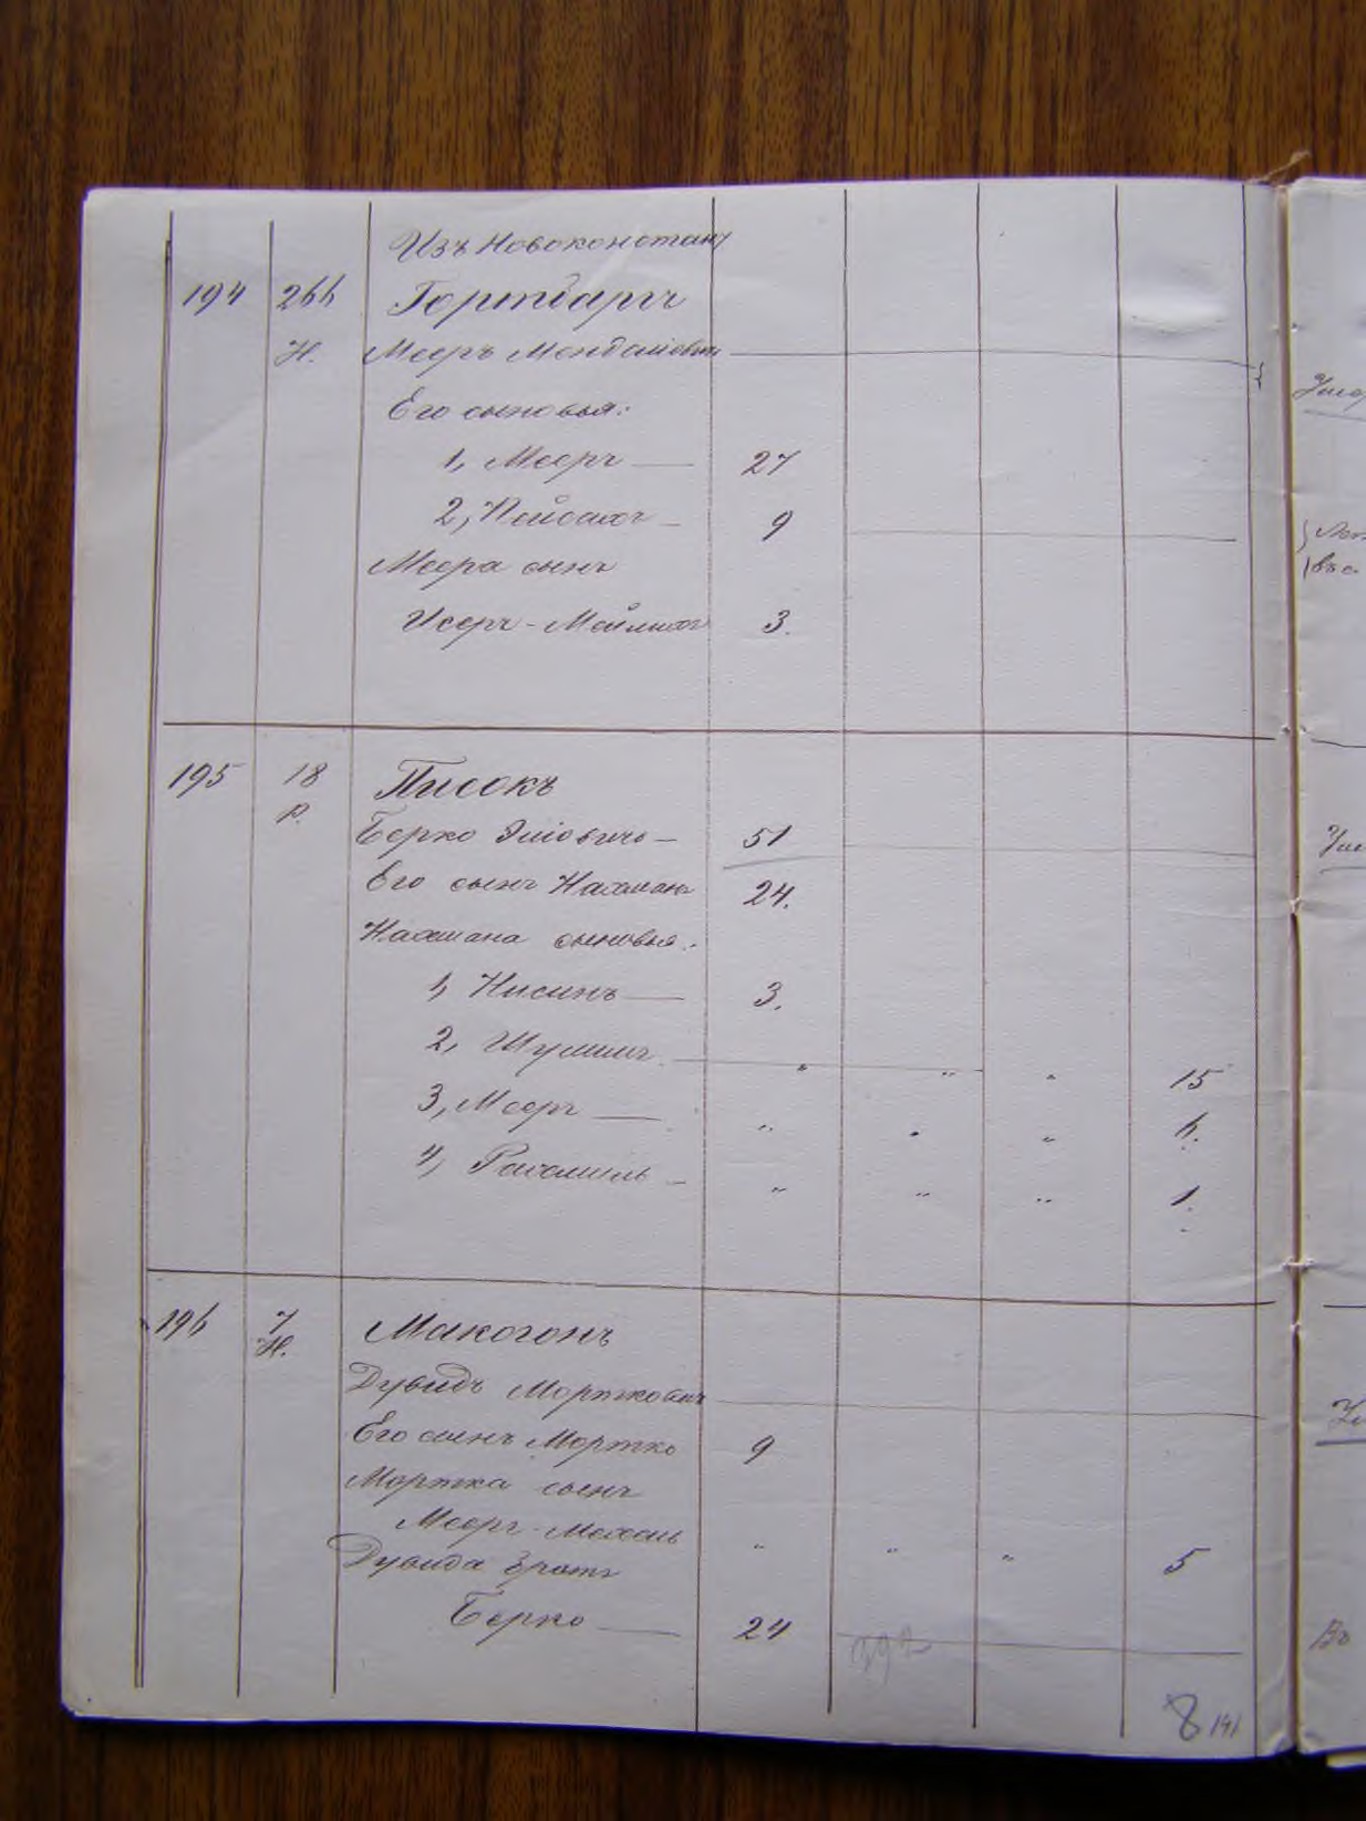 Изъ Новоконстан
194 266 Гортбаръ
Н. Меръ Менделіович
Его сыновья:
1, Мееръ — 27
2, Пейсахъ — 9
Меера сынъ
Исеръ-Мейлихъ 3.
195 18 Писокъ
Р.
Берко Эліовичъ — 51
Его сынъ Нахманъ 24.
Нахмана сыновья:
1, Нисинъ — 3.
2, Шулимъ — " " " 15
3, Мееръ — " " " 6.
4, Рахмиль — " " " 1.
196 7 Макогонъ
Н.
Дувидъ Мортковичъ
Его сынъ Мортко 9
Мортка сынъ
Мееръ-Мехель " " " 5
Дувида братъ
Берко — 24
8 141